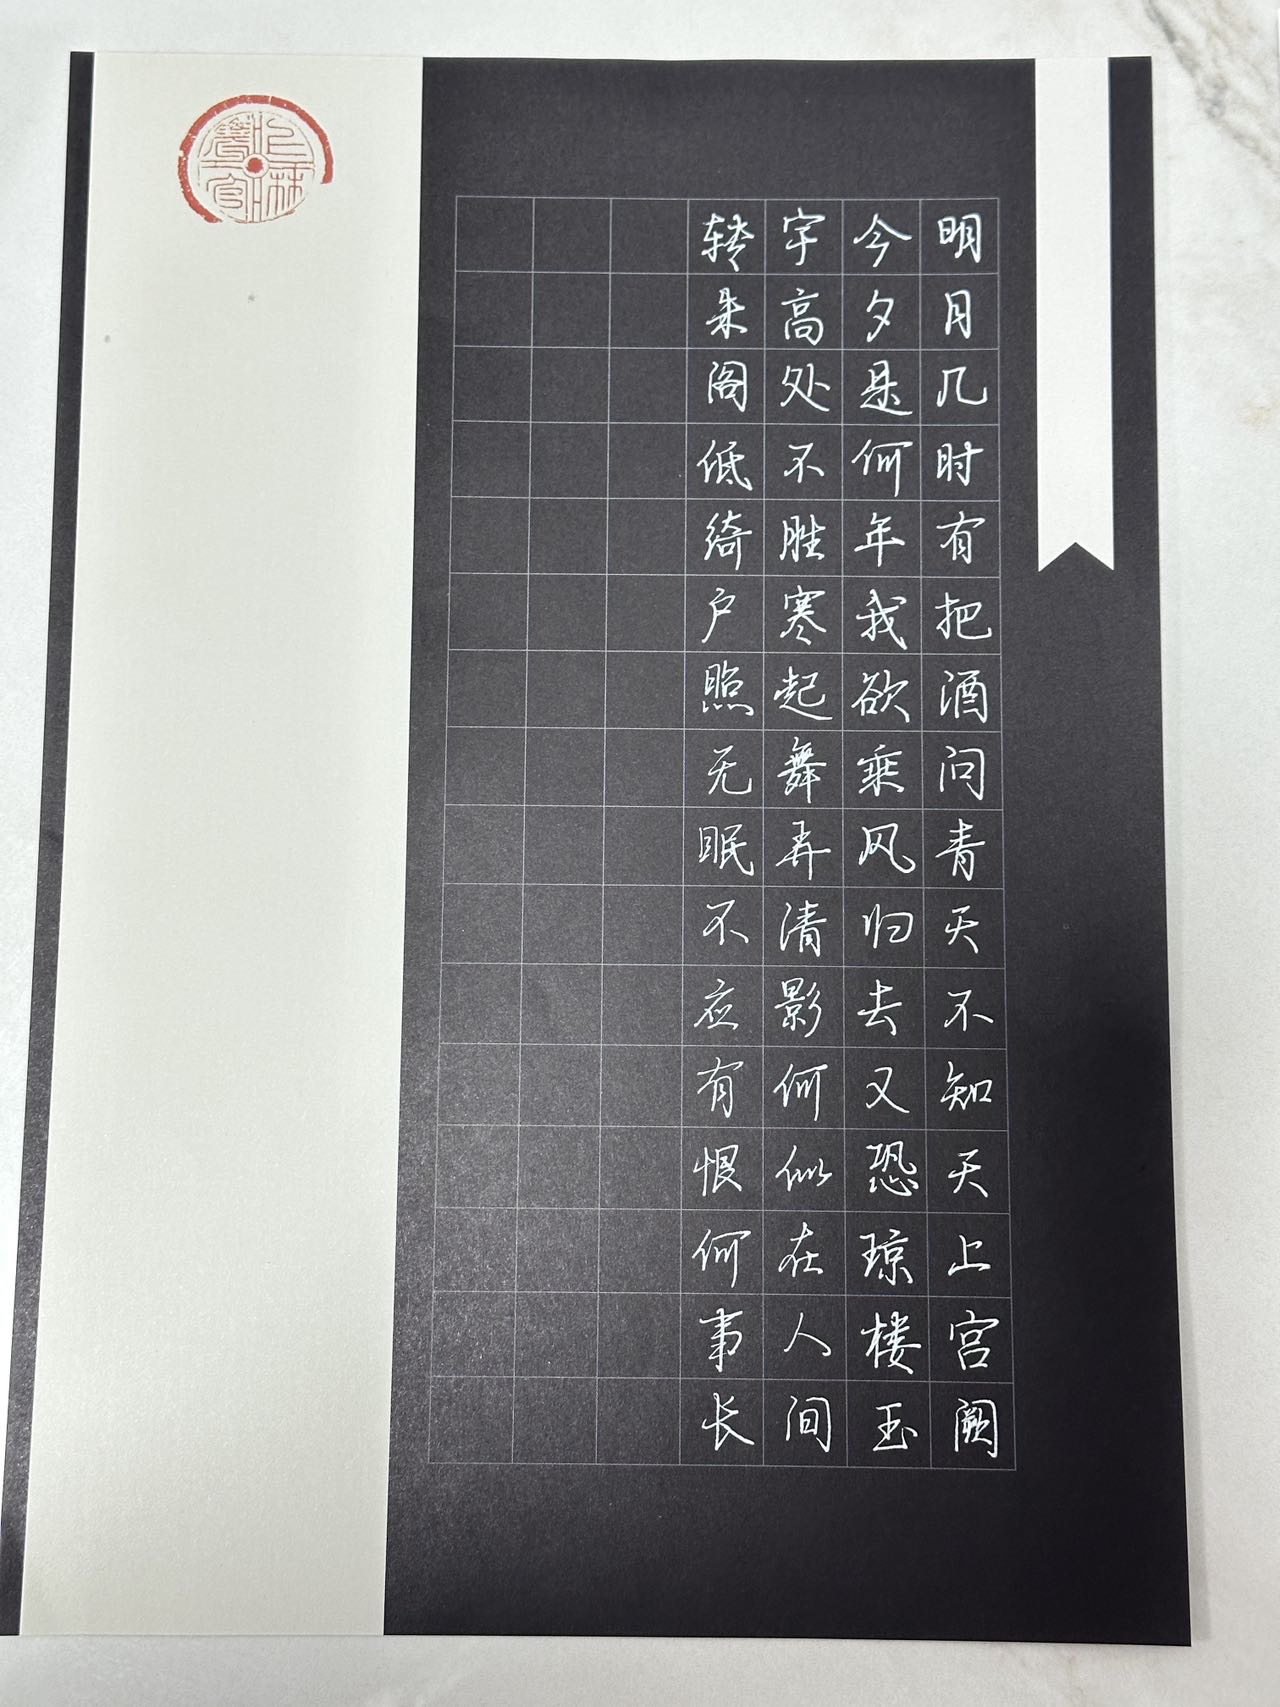 明月几时有把酒问青天不知天上宫阙
今夕是何年我欲乘风归去又恐琼楼玉
宇高处不胜寒起舞弄清影何似在人间
转朱阁低绮户照无眠不应有恨何事长